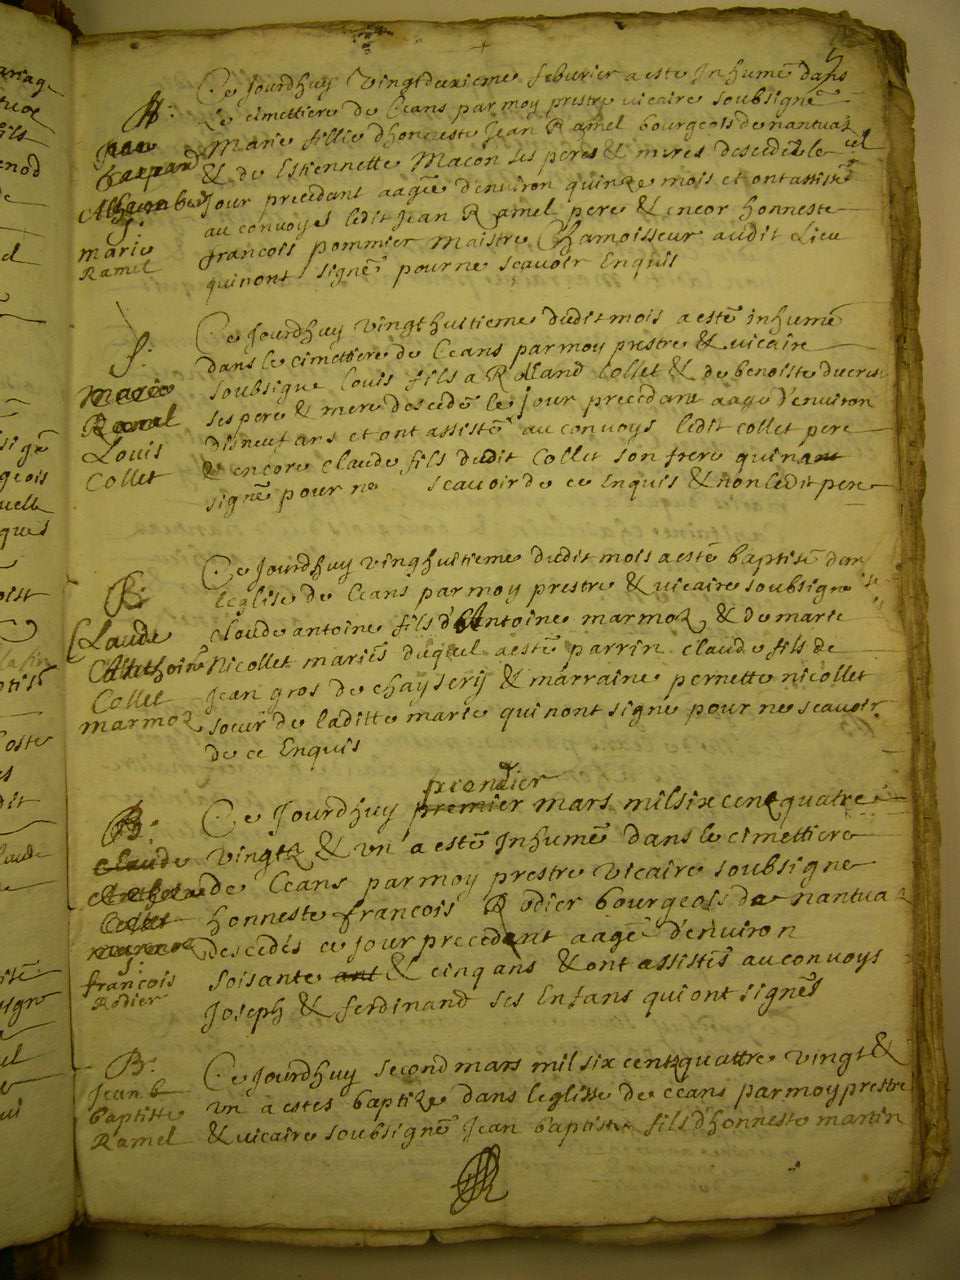 Ce Jourdhuy Vingtdeuxieme feburier a esté Inhumé dans
Le cimettiere de Ceans par moy prestre vicaire soubsigné
Marie fillie dhonneste Jean Ramel bourgeois de nantuaz
& de Estiennette Macon ses peres & meres descedée le
Jour precedant aagée denviron quinze mois et ont assisté
au convoyes ledit Jean Ramel pere & encor honneste
francois pommier Maistre Chamoisseur audit Lieu
quinont signé pour ne scavoir Enquis
S:
marie
Ramel
Ce Jourdhuy vingthuitieme dudit mois a esté inhumé
dans le cimettiere de Ceans par moy prestre & vicaire
soubsigne Louis fils a Rolland Collet & de benoiste
ses pere & mere descedé le jour precedant aagé d'environ
disneuf ans et ont assisté au convoys ledit collet pere
& encore claude fils dudit Collet son frere quinant
signé pour ne scavoir de ce Enquis & non ledit pere
S:
Marie
Ramel
Louis
Collet
Ce Jourdhuy vinghuitieme dudit mois a esté baptisé dan
leglise de Ceans par moy prestre & vicaire soubsigné
claude antoine fils d'Antoine marmoz & de marie
Nicollet mariés duquel a esté parrin claude fils de
Jean gros de chayserij & marraine pernette nicollet
soeur de laditte marie qui nont signé pour ne scavoir
de ce Enquis
B:
Claude
Anthoine
Collet
marmoz
Ce Jourdhuy premier mars mil six cent quatre
vingtz & un a esté Inhumé dans le cimettiere
de Ceans par moy prestre vicaire soubsigne
honneste francois Rodier bourgeois de nantuaz
descedés ce jour precedant aagé d'environ
soisante ant & cinq ans & ont assistés au convoys
Joseph & ferdinand ses Enfans qui ont signés
B:
claude
Collet
marmoz
S:
francois
Rodier
Ce Jourdhuy second mars mil six centz quattre vingt &
un a estes baptize dans leglise de ceans par moy prestre
& vicaire soubsigné Jean baptiste fils d'honneste martin
B:
Jean
baptiste
Ramel